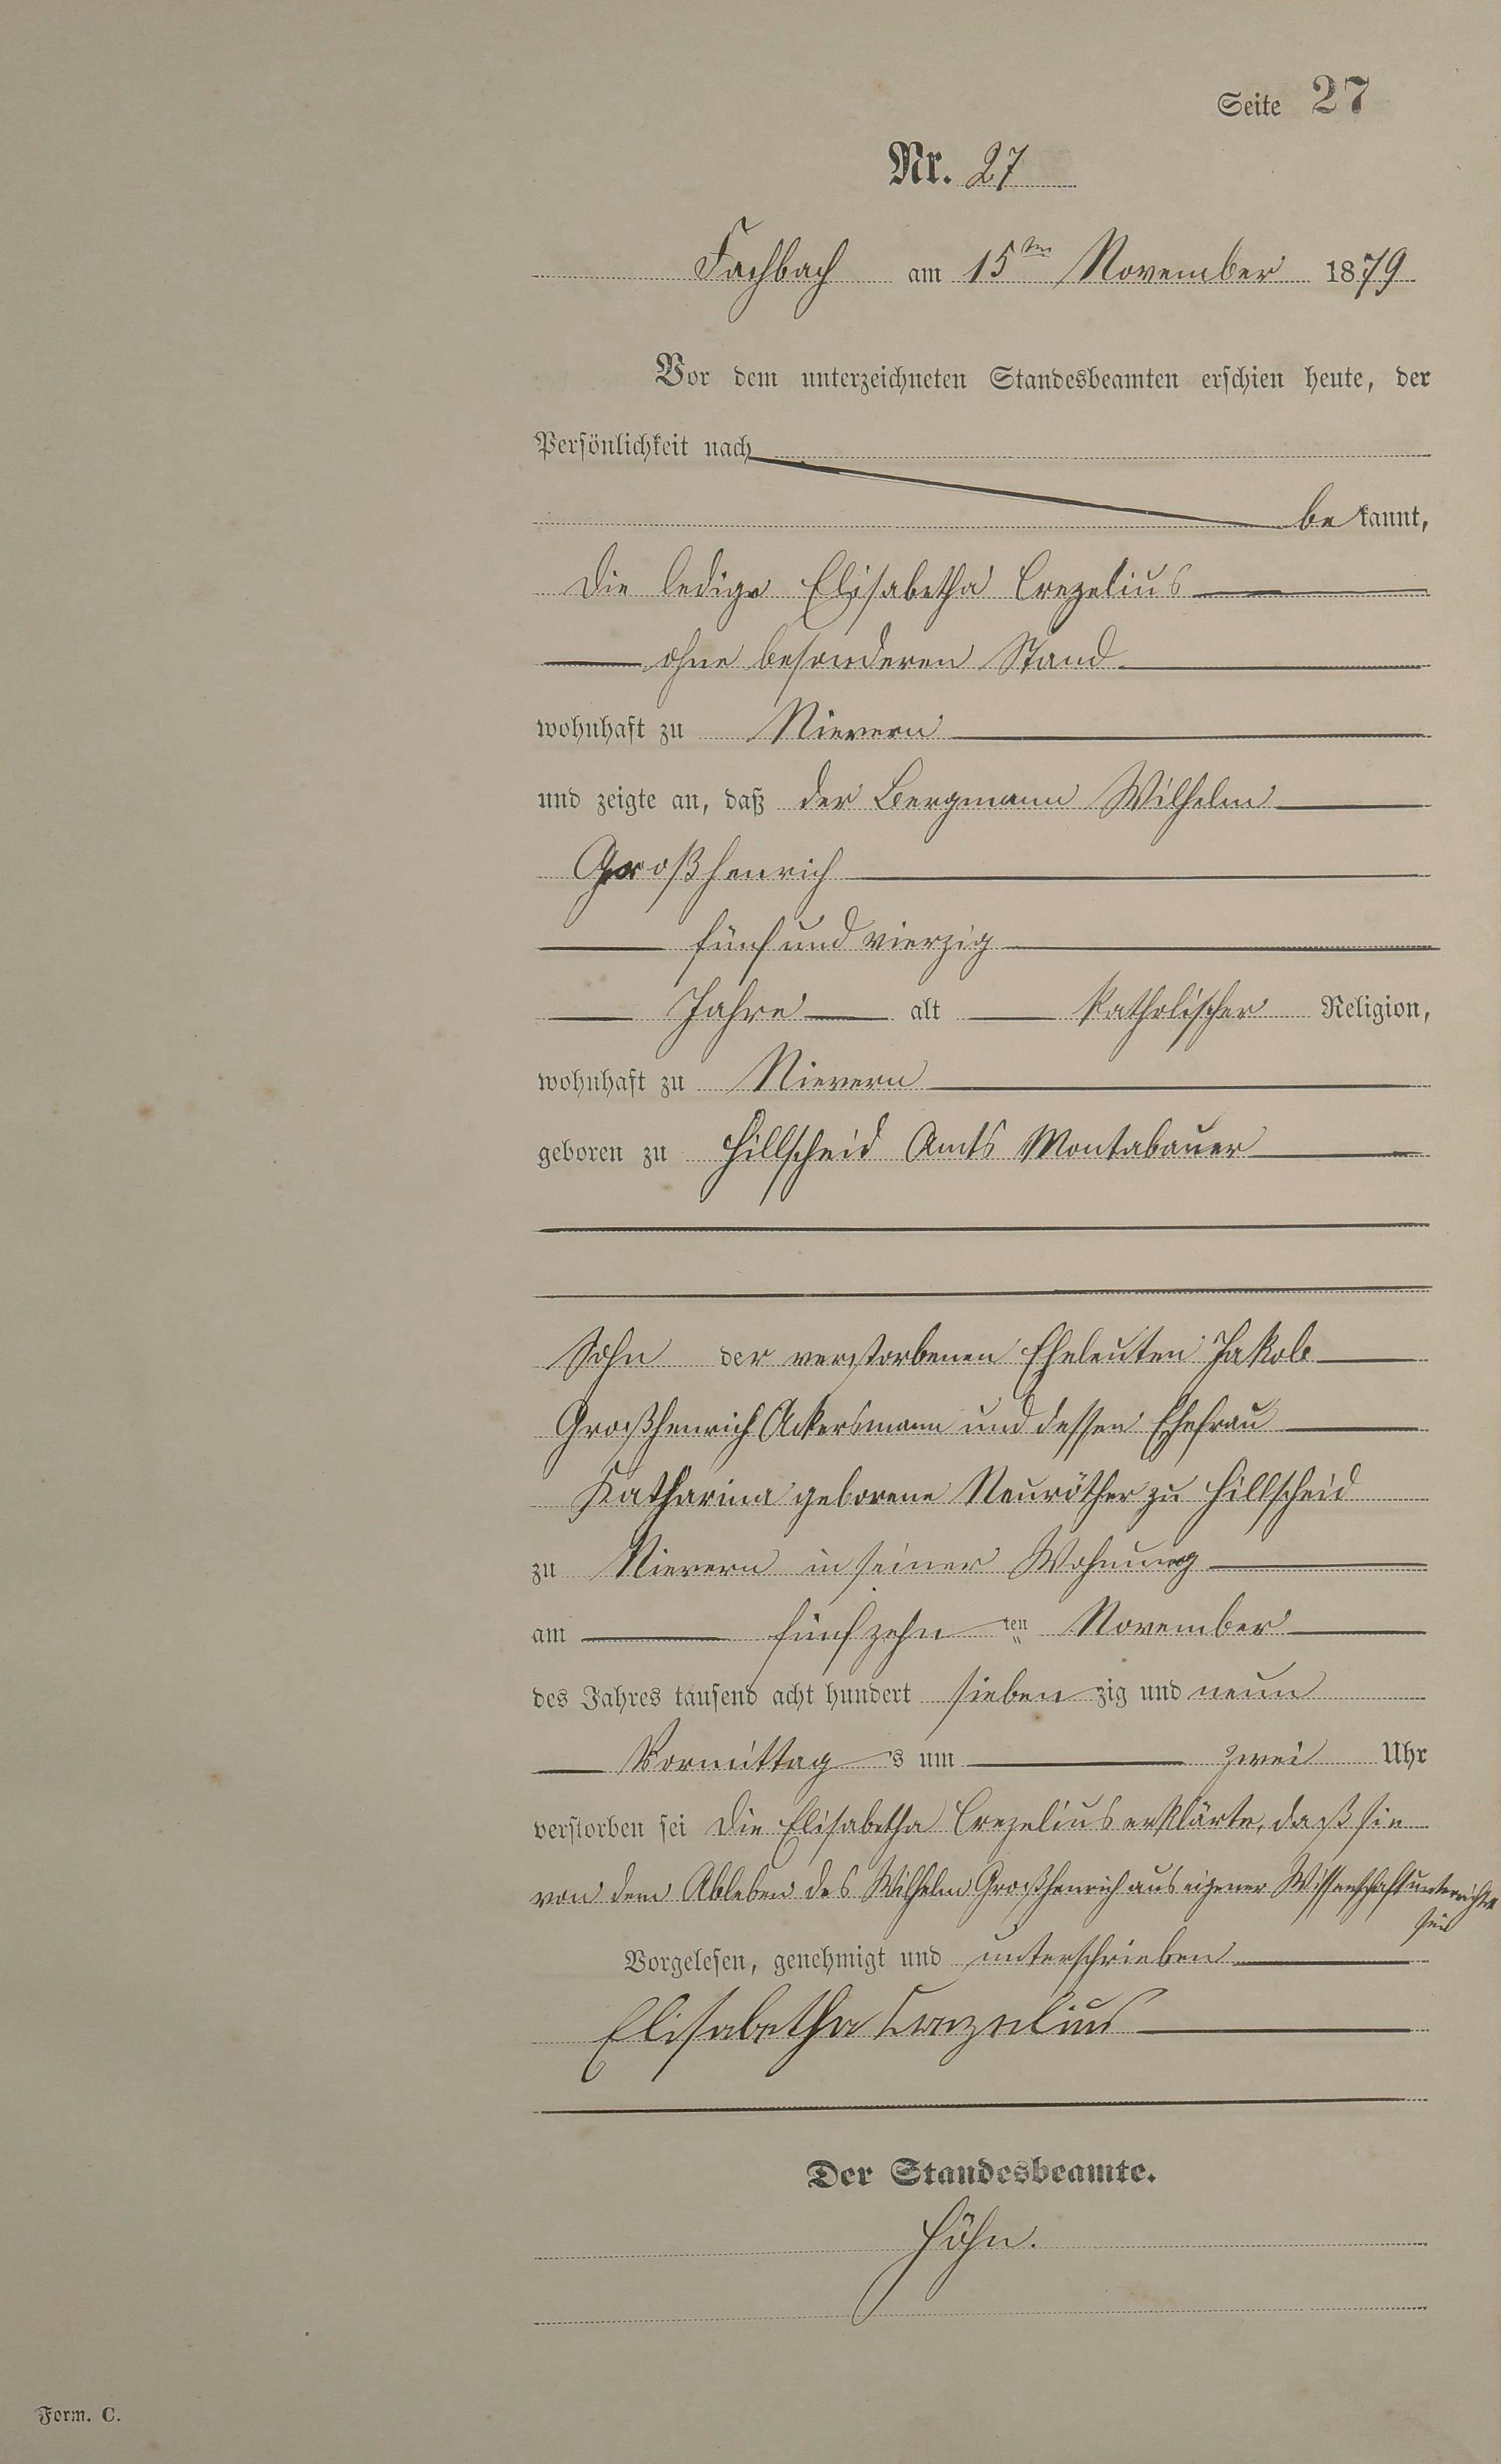 Seite 27
Nr. 27
Fachbach am 15ten November 1879
Vor dem unterzeichneten Standesbeamten erschien heute, der
Persönlichkeit nach
be kannt,
die ledige Elisabetha Crezelius
ohne besonderen Stand
wohnhaft zu Nievern
und zeigte an, daß der Bergmann Wilhelm
Großhenrich
fünf und vierzig
Jahre alt katholischer Religion,
wohnhaft zu Nievern
geboren zu Hillscheid Amts Montabauer
Sohn der verstorbenen Eheleuten Jakob
Großhenrich Ackersmann und dessen Ehefrau
Katharina geborene Neuröther zu Hillscheid
zu Nievern in seiner Wohnung
am fünfzehn ten November
des Jahres tausend acht hundert sieben zig und neun
Vormittag s um zwei Uhr
verstorben sei die Elisabetha Crezelius erklärte, daß sie
von dem Ableben des Wilhelm Großhenrich aus eigener Wissenschaft unterrichtet
sei
Vorgelesen, genehmigt und unterschrieben
Elisabetha Crezelius
Der Standesbeamte.
Höhn.
Form. C.